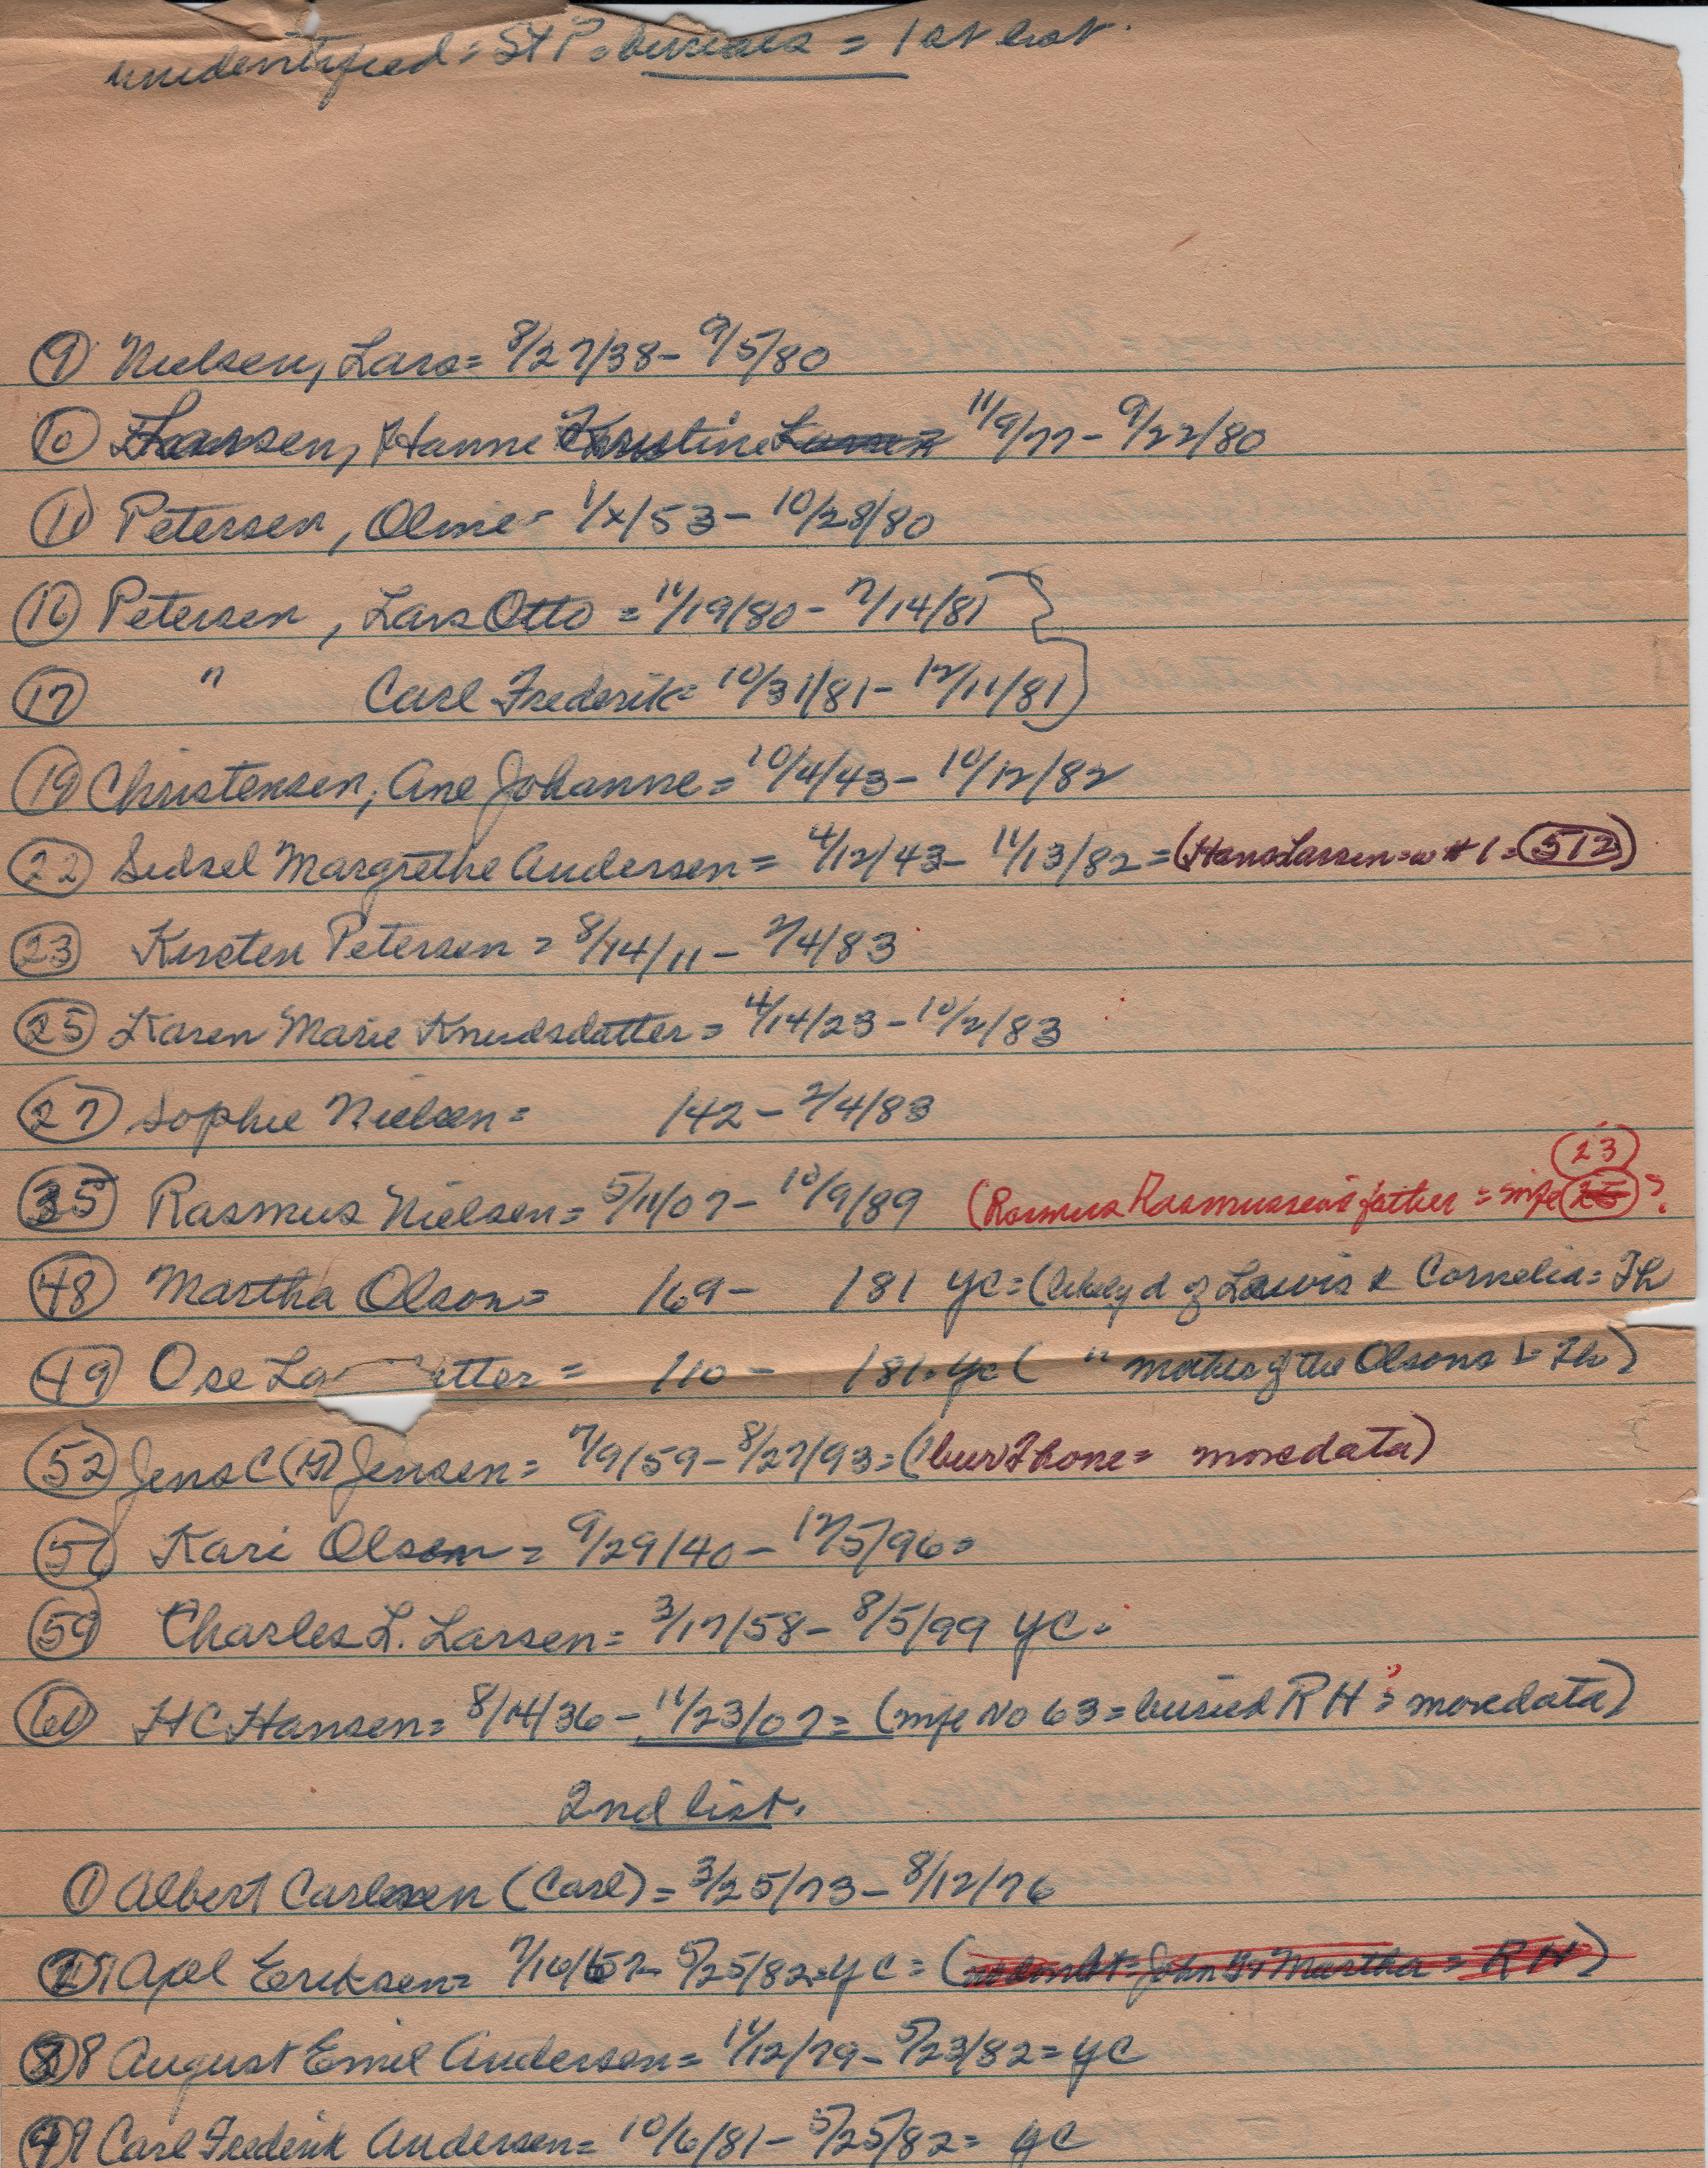 unidentified = St P. burials = 1st list.
(9) Nielsen, Lars = 8/27/38 - 9/5/80
(10) Hansen, Hanne Kristine 11/9/77 - 9/22/80
(11) Petersen, Oline = 1/x/53 - 10/28/80
(16) Petersen, Lars Otto = 11/19/80 - 7/14/81
(17) " Carl Frederik = 10/31/81 - 12/11/81
(19) Christensen, Ane Johanne = 10/4/43 - 10/12/82
(22) Sidsel Margrethe Andersen = 4/12/43 - 11/13/82 = (Hans Larsen = w #1 = (512))
(23) Kirsten Petersen = 8/14/11 - 2/4/83
(25) Karen Marie Knudsdatter = 4/14/23 - 10/2/83
(27) Sophie Nielsen = /42 - 2/4/83
(35) Rasmus Nielsen = 5/11/07 - 10/9/89 (Rasmus Rasmussen's father = wife (25) (23) ?
(48) Martha Olson = /69 - /81 YC = (likely d of Lewis & Cornelia = Th
(49) Ose La tter = /10 - /81. yc ( " mother of the Olsons = Th)
(52) Jens C (H) Jensen = 7/9/59 - 8/27/93 = (bur Thone = more data)
(56) Kari Olson = 9/29/40 - 12/5/96 =
(59) Charles L. Larsen = 3/17/58 - 8/5/99 YC.
(60) H C Hansen = 8/14/36 - 11/23/07 = (wife No 63 = buried R H = more data)
2nd list.
(1) Albert Carlsen (Carl) = 3/25/73 - 8/12/76
7 Axel Eriksen = 7/16/ - 5/25/82 = yc = (no doubt = John & Martha = R H)
8 August Emil Andersen = 11/12/79 - 5/23/82 = yc
9 Carl Frederik Andersen = 10/6/81 - 5/25/82 = yc